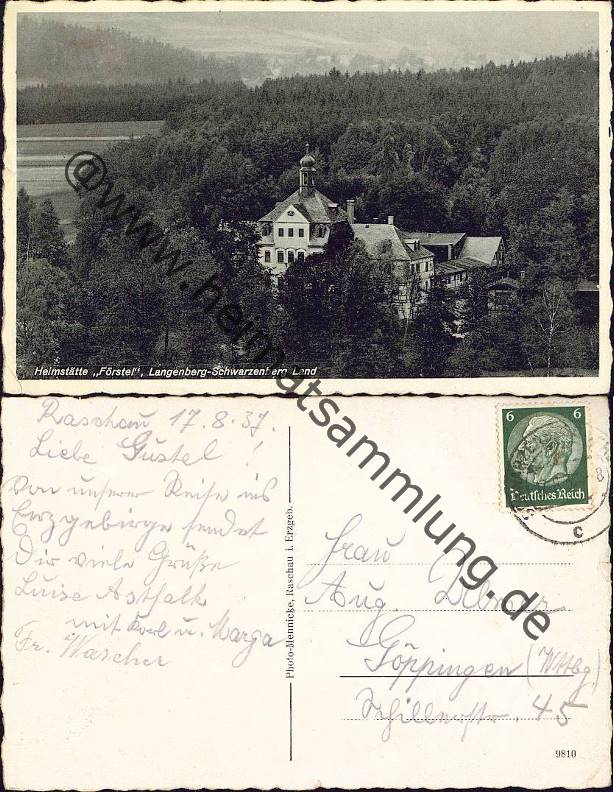 Heimstätte „Förstel", Langenberg-Schwarzenberg Land
@www.heimatsammlung.de
Raschau 17.8.37.
Liebe Gustel!
Von unserer Reise ins
Erzgebirge sendet
Dir viele Grüße
Luise Astfalk
mit Karl u. Marga
Fr. Wascher
Photo-Mennicke, Raschau i. Erzgeb.
6 6
Deutsches Reich
c
Frau
Aug.
Göppingen (Wttbg)
Schillerstr. 45
9810